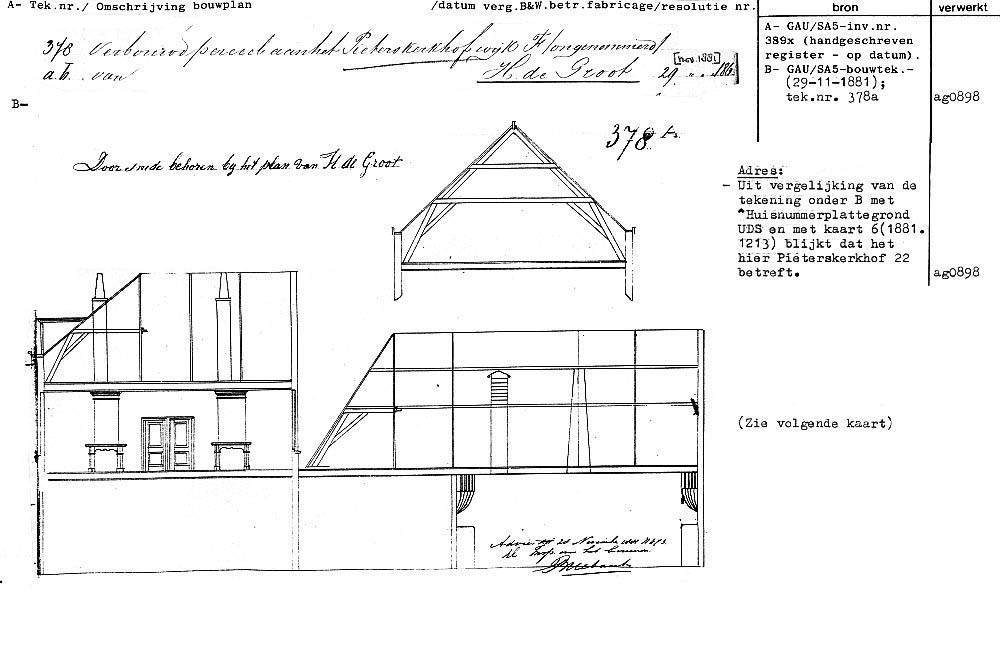 A- Tek.nr./ Omschrijving bouwplan /datum verg.B&W.betr.fabricage/resolutie nr.
bron
verwerkt
378 Verbouw perceel aan het Pieterskerkhof wijk F (ongenommerd)
a.b. van H. de Groot 29 [nov. 1881]
A- GAU/SA5-inv.nr.
389x (handgeschreven
register - op datum).
B- GAU/SA5-bouwtek.-
(29-11-1881);
tek.nr. 378a
ag0898
B-
378 A.
Doorsnede behoren by het plan van H de Groot
Adres:
- Uit vergelijking van de
tekening onder B met
"Huisnummerplattegrond
UDS en met kaart 6(1881.
1213) blijkt dat het
hier Pieterskerkhof 22
betreft.
ag0898
(Zie volgende kaart)